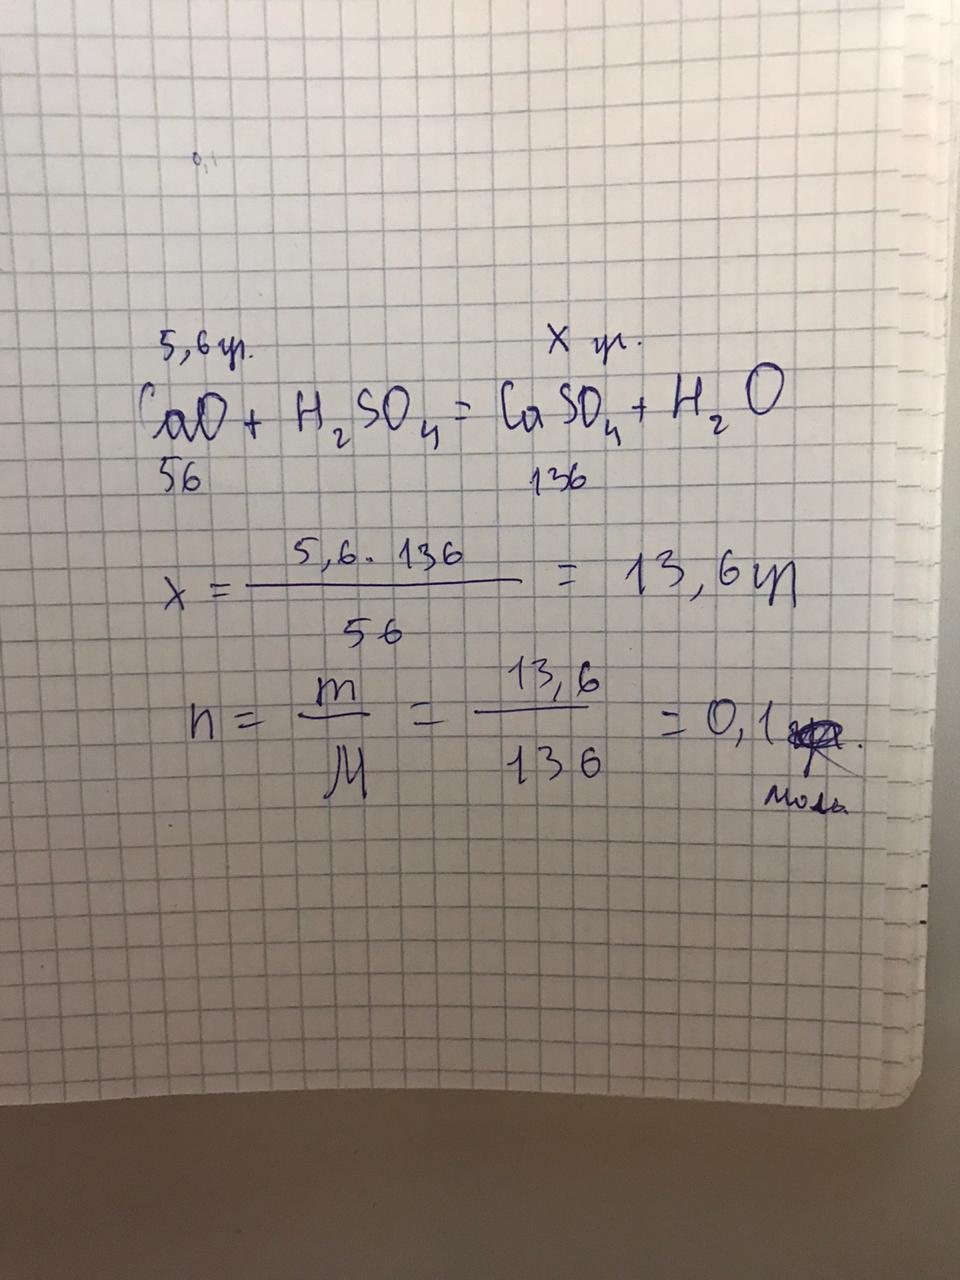 0,1
5,6 гр. X гр.
CaO + H₂SO₄ = CaSO₄ + H₂O
56 136
x = 5,6 · 136 / 56 = 13,6 гр
n = m / M = 13,6 / 136 = 0,1
моль